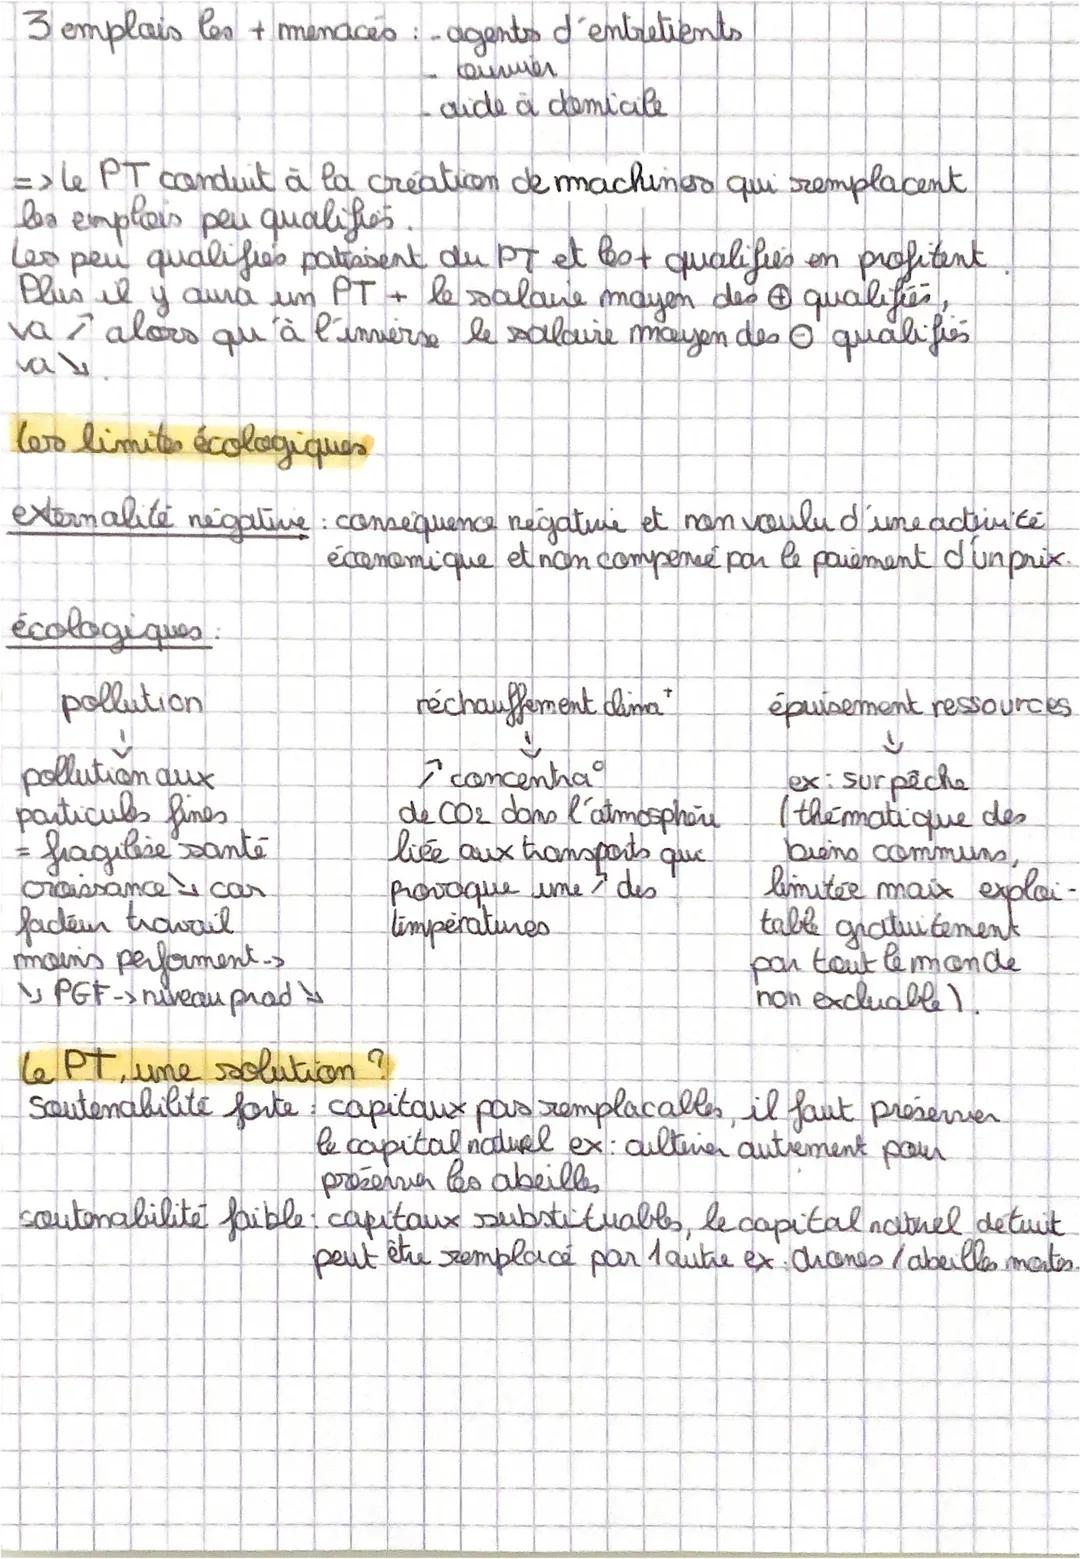 3 emplois les + menacés : - agents d'entretients
- ouvrier
- aide à domicile
=> le PT conduit à la création de machines qui remplacent
les emplois peu qualifiés.
Les peu qualifiés patissent du PT et les + qualifiés en profitent.
Plus il y aura un PT + le salaire moyen des ⊕ qualifiés,
va ↗ alors qu'à l'inverse le salaire moyen des ⊖ qualifiés
va ↘.
Les limites écologiques
externalité négative : conséquence négative et non voulu d'une activité
économique et non compensé par le paiement d'un prix.
écologiques :
pollution
↓
pollution aux
particules fines
= fragilise santé
croissance ↘ car
facteur travail
moins performent ->
↘ PGF -> niveau prod ↘
réchauffement clima+
↓
↗ concentra°
de CO2 dans l'atmosphère
liée aux transports que
provoque une ↗ des
températures
épuisement ressources
↓
ex : surpêche
(thématique des
biens communs,
limitée maix exploi-
table gratuitement
par tout le monde
non excluable).
Le PT, une solution ?
Soutenabilité forte : capitaux pas remplacables, il faut préserver
le capital naturel ex : cultiver autrement pour
préserver les abeilles
soutenabilité faible : capitaux substituables, le capital naturel détruit
peut être remplacé par 1 autre ex : drones / abeilles mortes.